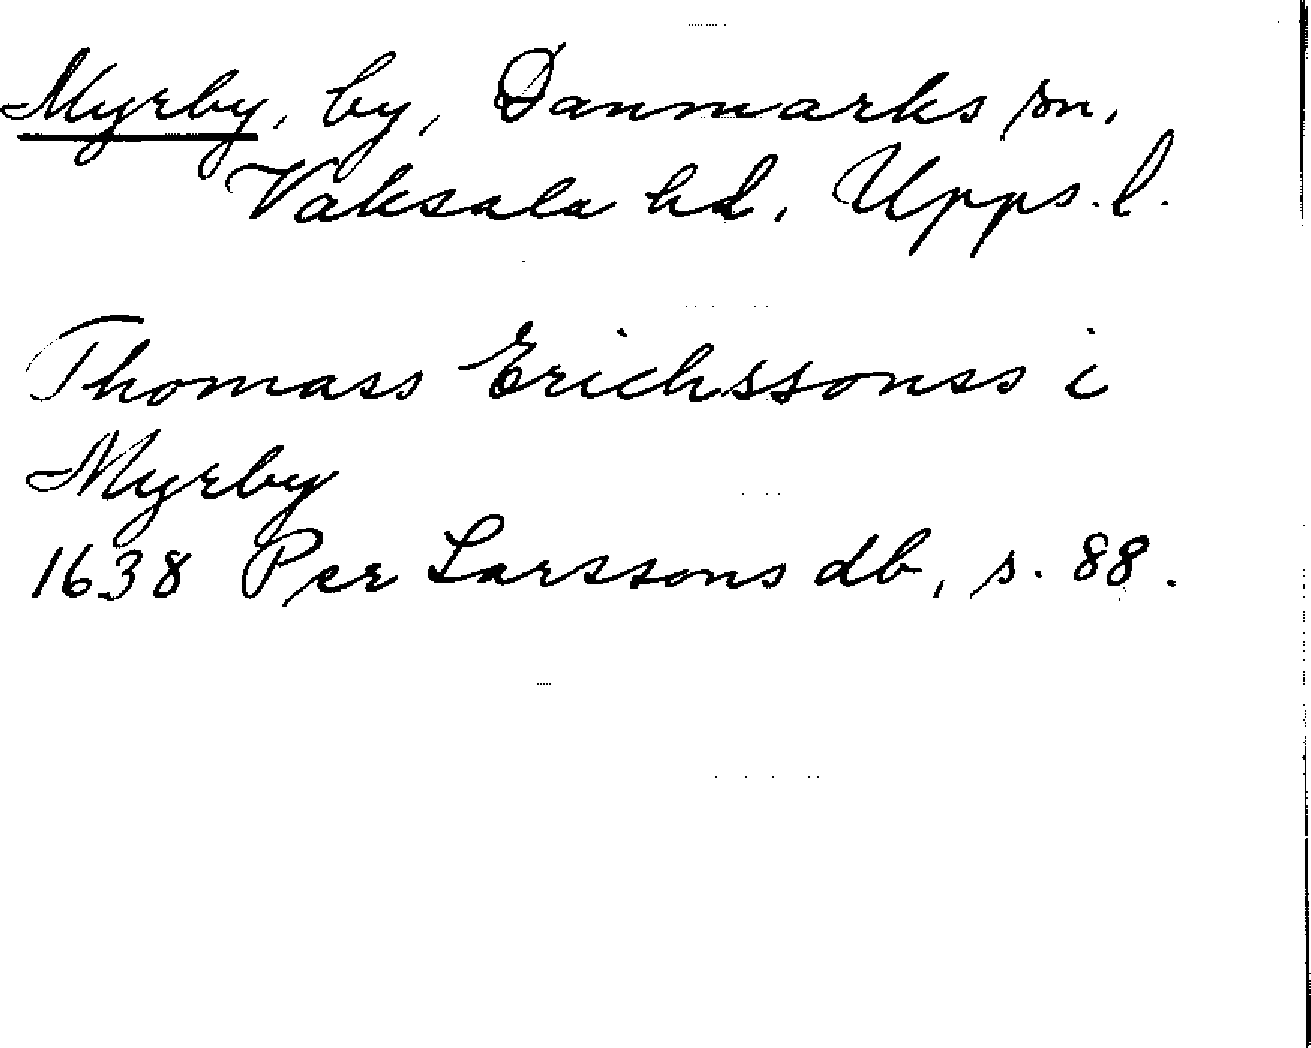 Myrby, by, Danmarks sn,
Vaksala hd, Upps. l.
Thomass Erichssonss i
Myrby
1638 Per Larssons db, s. 88.